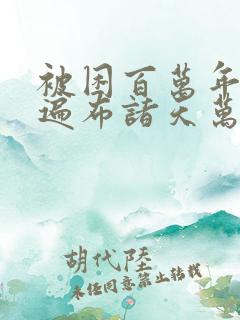 被困百萬年
遍布諸天萬
胡代陸
未經同意禁止轉載